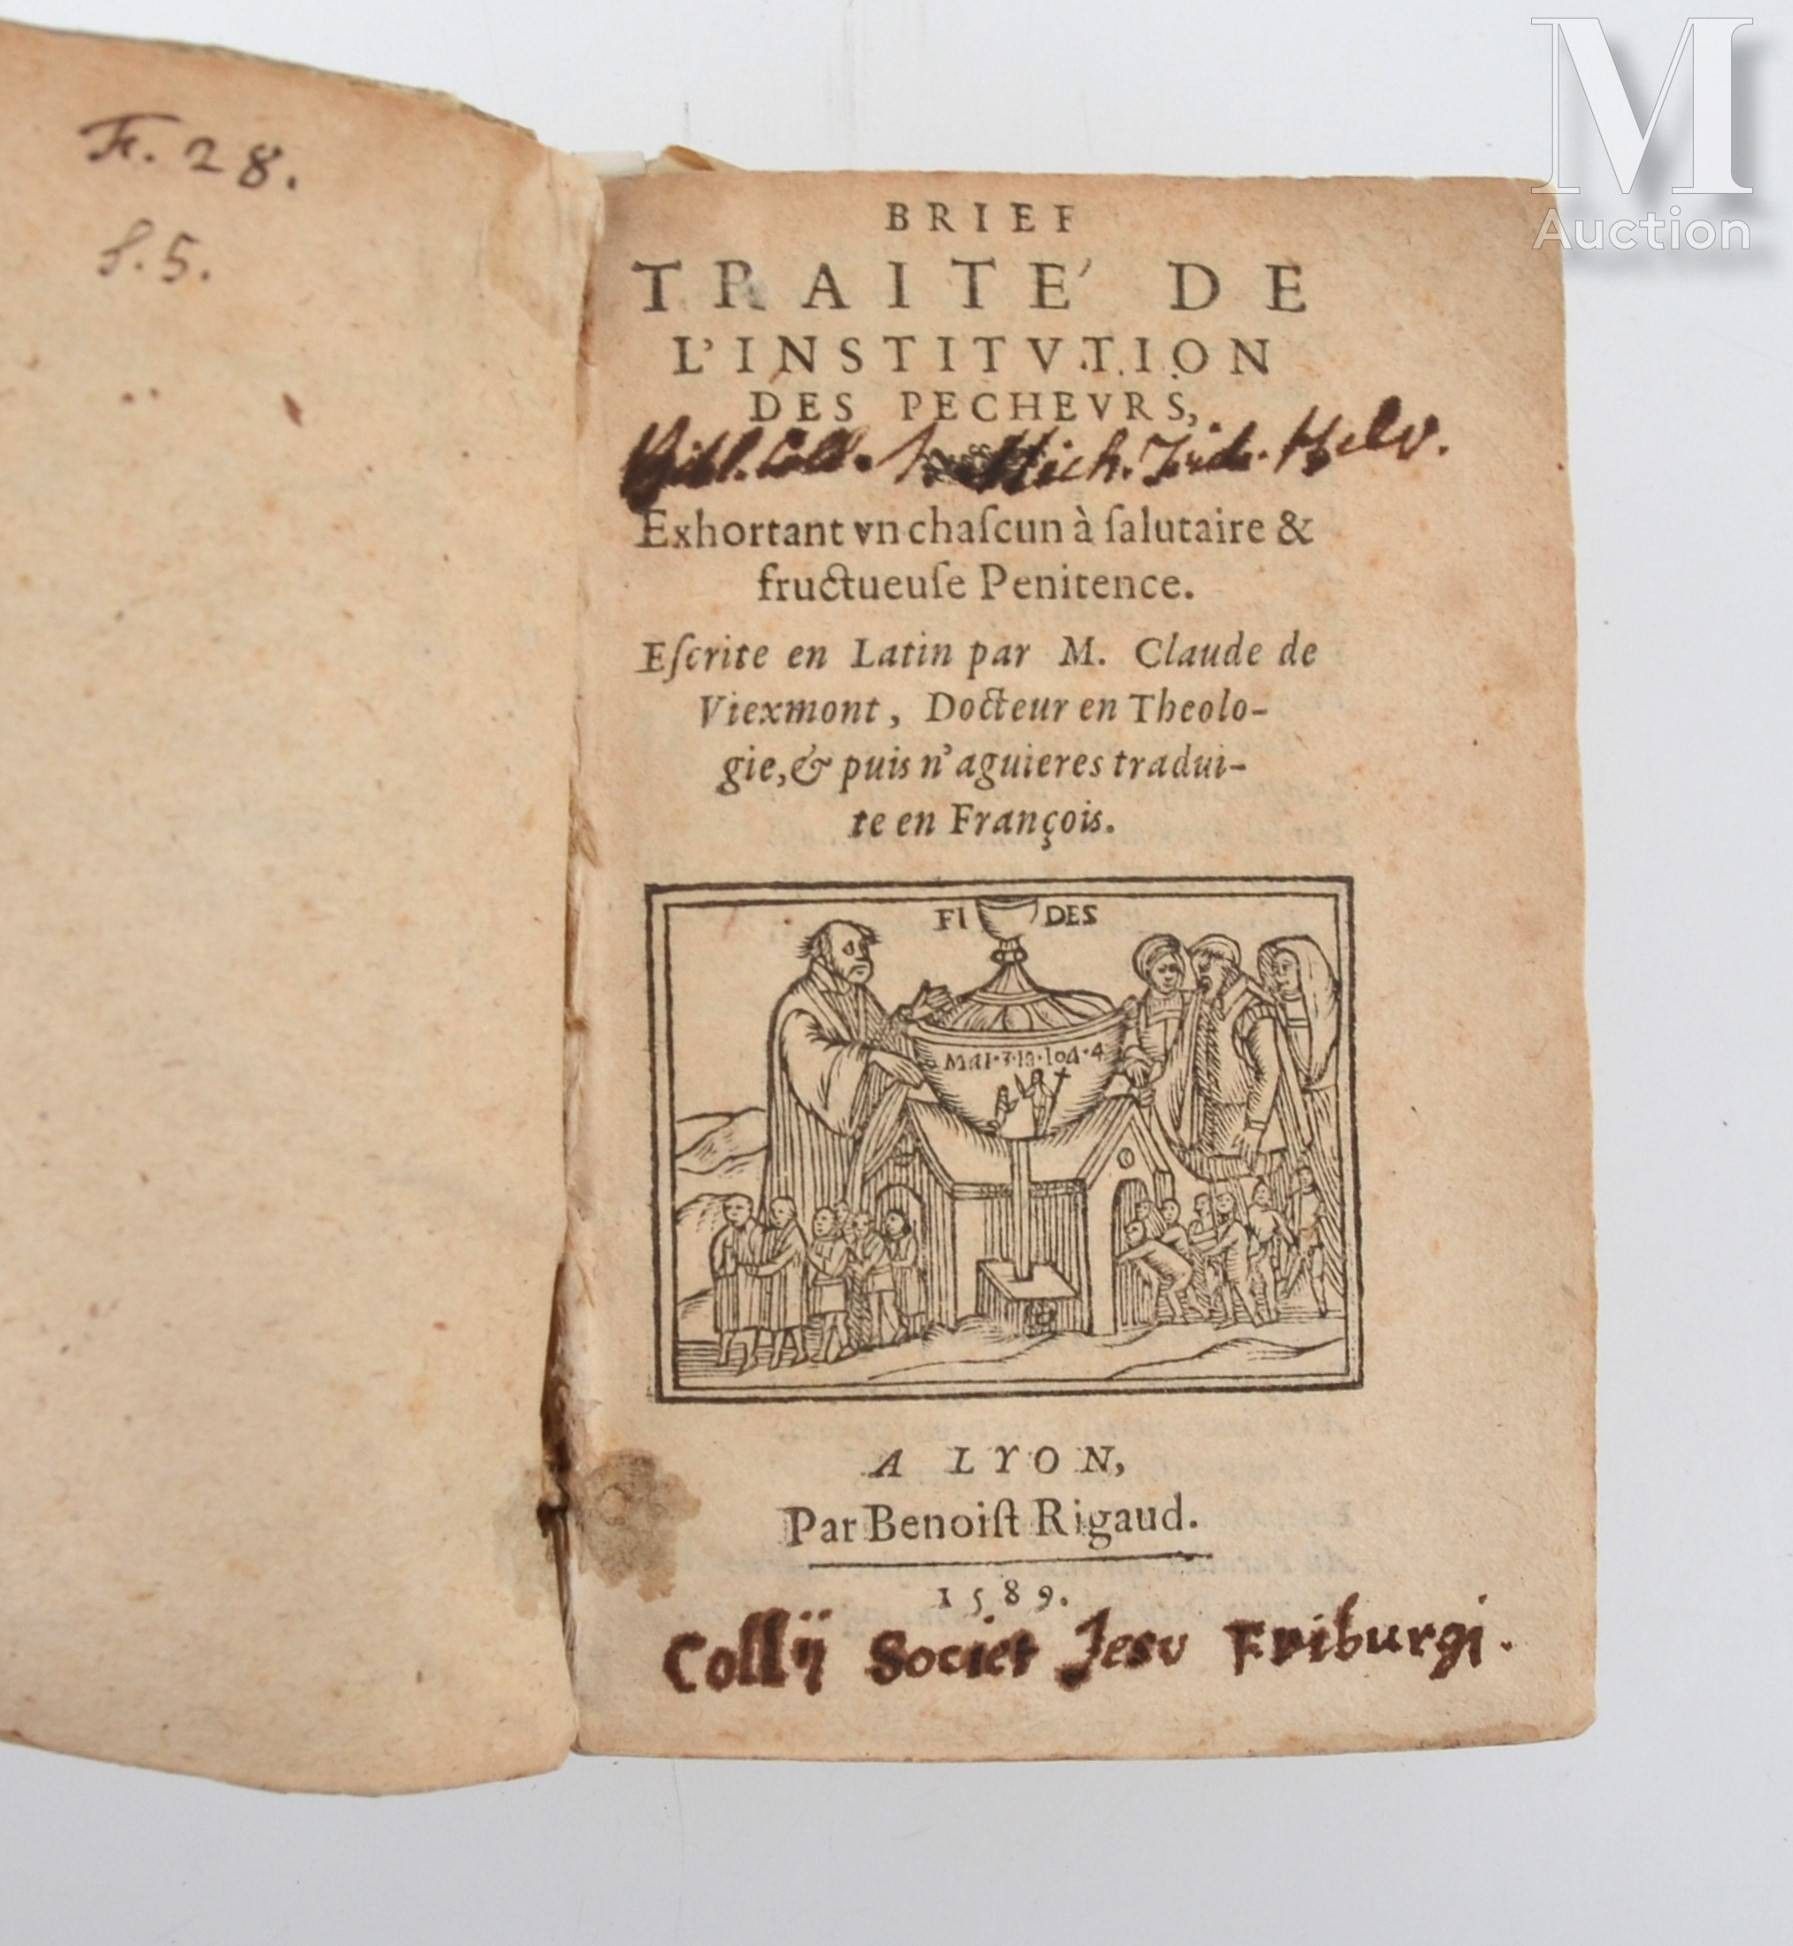 M
Auction
F. 28.
8.5.
BRIEF
TRAITE' DE
L'INSTITVTION
DES PECHEVRS,
Bibl. Coll. Mich. Frib. Helv.
Exhortant vn chaſcun à ſalutaire &
fructueuſe Penitence.
Eſcrite en Latin par M. Claude de
Viexmont, Docteur en Theolo-
gie, & puis n'aguieres tradui-
te en François.
FI DES
A LYON,
Par Benoiſt Rigaud.
1589.
Collij Societ Jesu Friburgi.